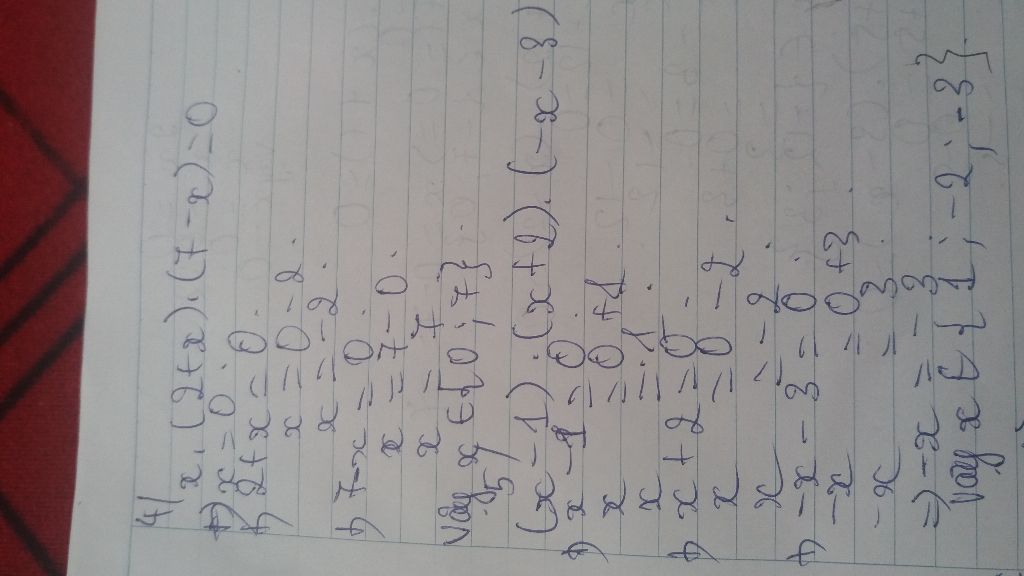 4/
x. (2+x). (7-x) = 0
+) x = 0.
+) 2+x = 0.
x = 0 - 2.
x = -2.
+) 7-x = 0.
x = 7-0.
x = 7
Vậy x ∈ {0 ; 7}.
5/
(x-1). (x+2). (-x-3)
+) x - 1 = 0.
x = 0 + 1
x = 1.
+) x + 2 = 0.
x = 0 - 2.
x = -2.
+) -x - 3 = 0.
-x = 0 + 3
-x = 3.
=) -x = -3
Vậy x ∈ { 1 ; -2 ; -3 }.